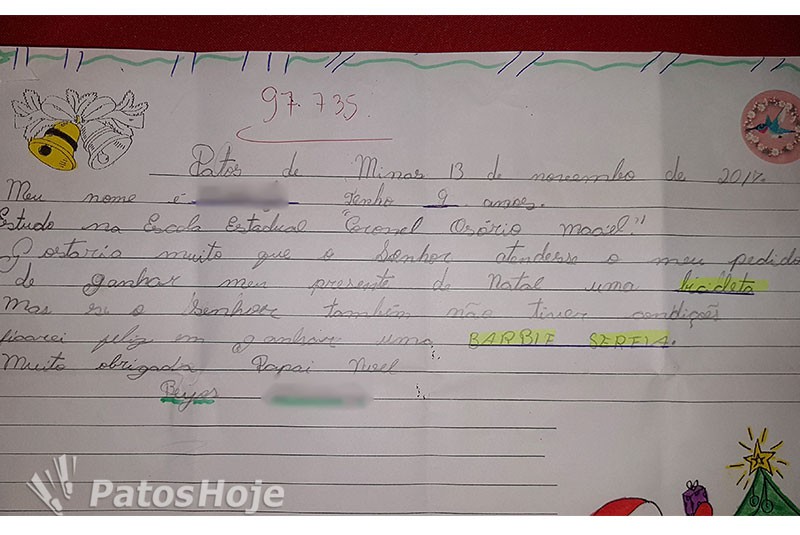 97.735
Patos de Minas 13 de novembro de 2017.
Meu nome é tenho 9 anos.
Estudo na Escola Estadual "Coronel Osório Maciel."
Gostaria muito que o Senhor atendesse o meu pedido
de ganhar meu presente de Natal uma bicicleta
Mas se o Senhor também não tiver condições
ficarei feliz em ganhar uma BARBIE SEREIA.
Muito obrigada Papai Noel
Beijos
PatosHoje